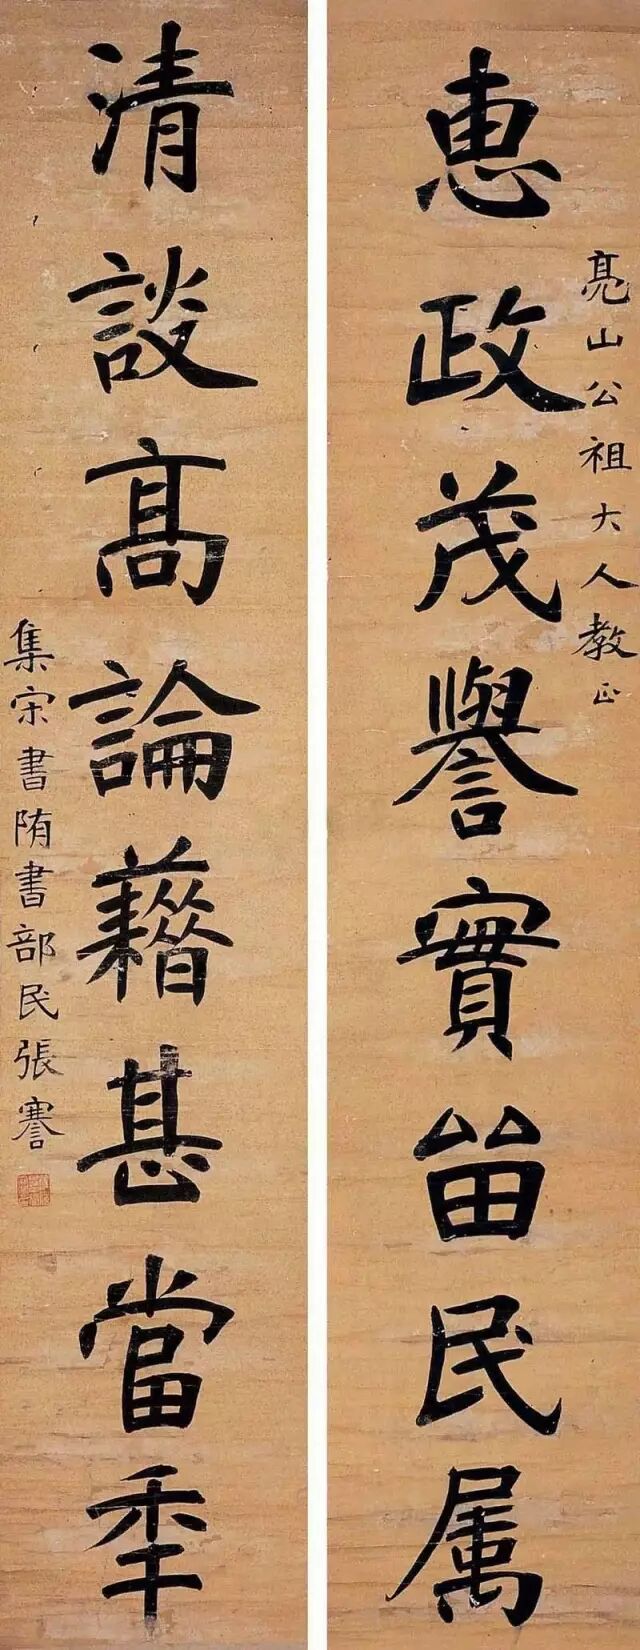 亮山公祖大人教正
惠政茂譽實留民属
清談高論藉甚當年
集宋書隋書部民張謇